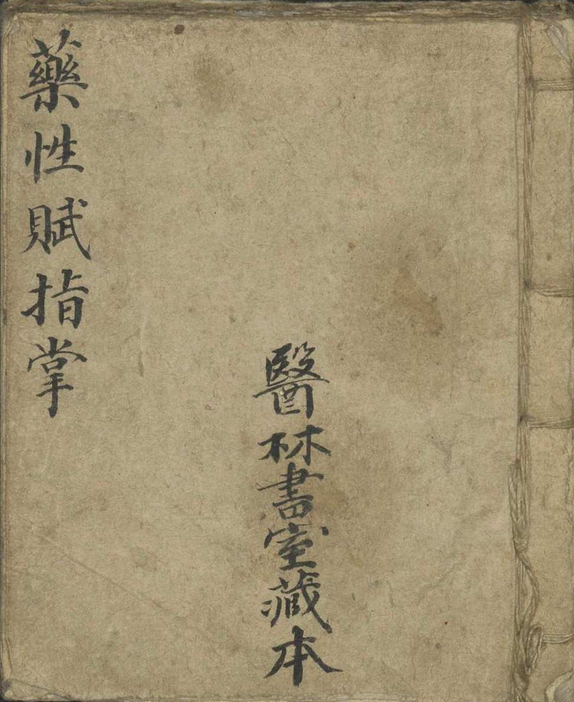 藥性賦指掌
醫林書室藏本